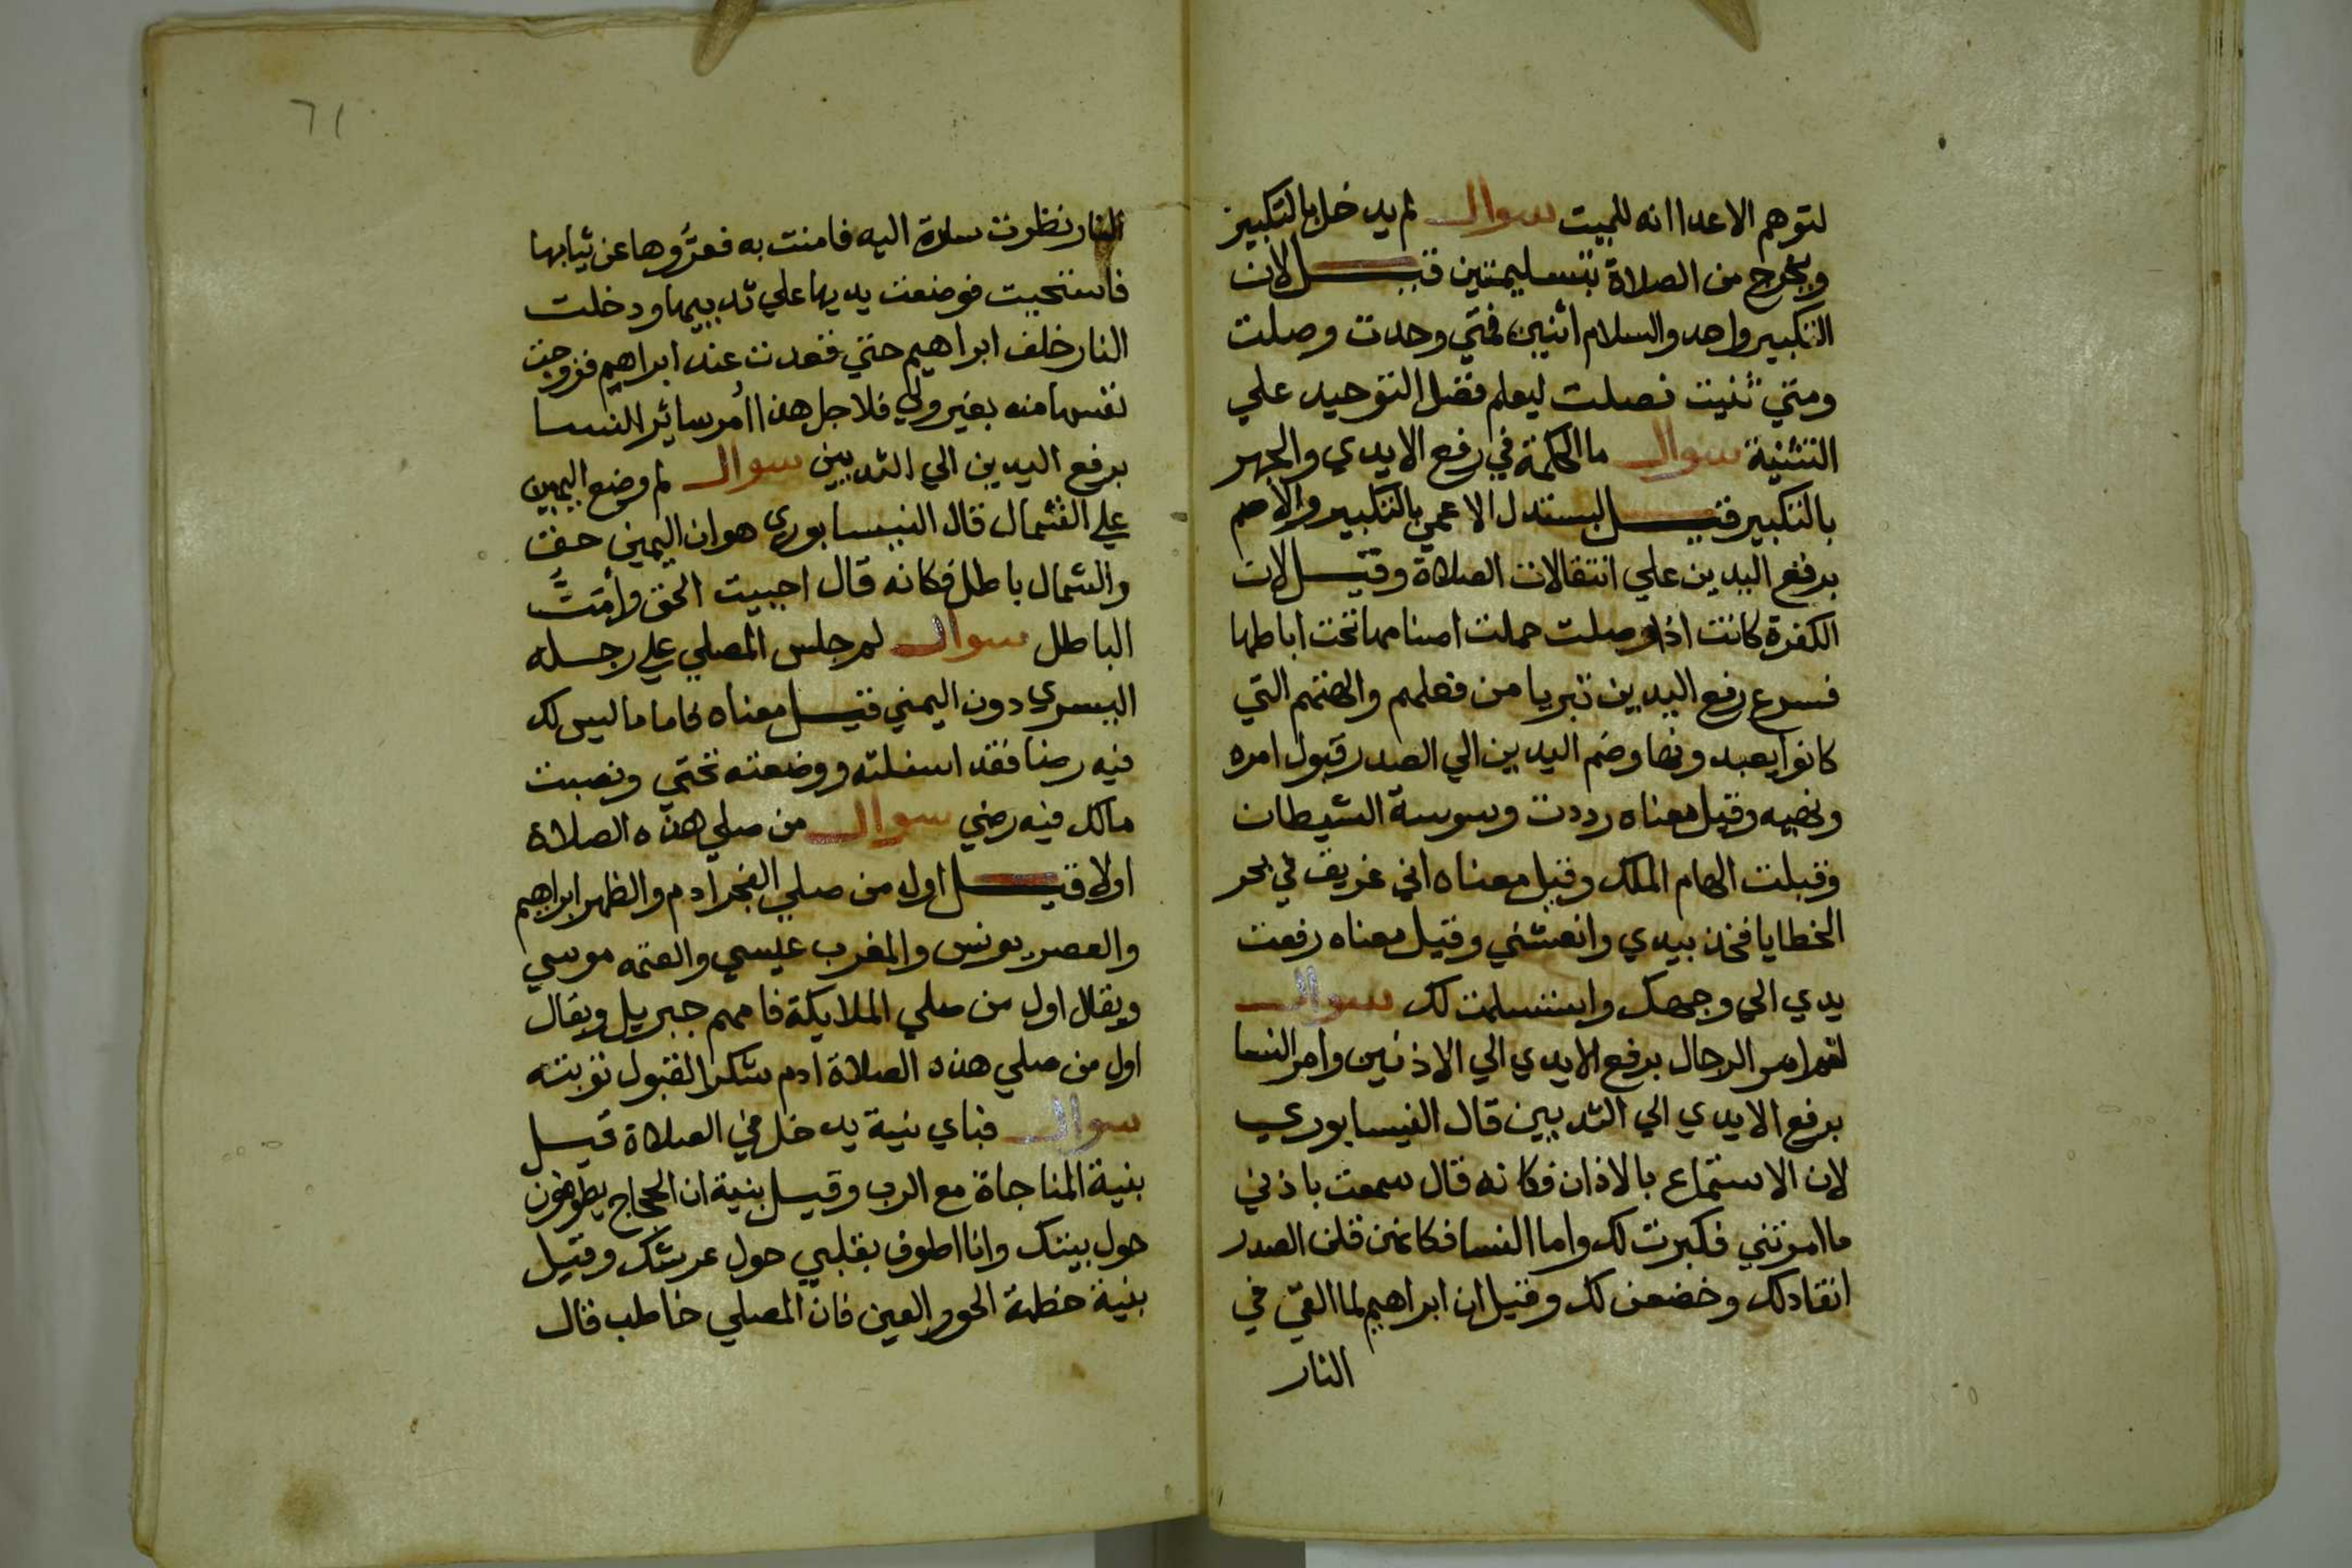 لتوهم الاعدا انه للميت سوال لم يدخل بالتكبير
ويخرج من الصلاة بتسليمتين قيل لان
التكبير واحد والسلام اثنين فمتي وحدت وصلت
ومتي ثنيت فصلت ليعلم فضل التوحيد علي
التثنية سوال ما الحكمة في رفع الايدي والجهر
بالتكبير قيل ليستدل الاعمي بالتكبير والاصم
برفع اليدين علي انتقالات الصلاة وقيل لان
الكفرة كانت اذا صلت حملت اصنامها تحت اباطها
فسرع رفع اليدين تبريا من فعلهم والهتهم التي
كانوا يعبدونها وضم اليدين الي الصدر قبول امره
ونهيه وقيل معناه رددت وسوسة الشيطان
وقبلت الهام الملك وقيل معناه اني غريق في بحر
الخطايا فخذ بيدي وانعشني وقيل معناه رفعت
يدي الي وجهك واستسلمت لك سوال
لم امر الرجال برفع الايدي الي الاذنين وامر النسا
برفع الايدي الي الثديين قال النيسابوري
لان الاستماع بالاذان فكانه قال سمعت باذني
ما امرتني فكبرت لك واما النسا فكانهن قلن الصدر
انقاد لك وخضعن لك وقيل ان ابراهيم لما القي في
النار
٦١
النار نظرت سارة اليه فامنت به فعروها عن ثيابها
فاستحيت فوضعت يديها علي ثدييها ودخلت
النار خلف ابراهيم حتي قعدت عند ابراهيم فزوجت
نفسها منه بغير ولي فلاجل هذا امر سائر النسا
برفع اليدين الي الثديين سوال لم وضع اليمين
علي الشمال قال النيسابوري هو ان اليمين حق
والشمال باطل فكانه قال احييت الحق وأمتّ
الباطل سوال لم جلس المصلي علي رجله
اليسري دون اليمني قيل معناه كاما ما ليس لك
فيه رضا فقد اسفلته ووضعته تحتي ونصبت
مالك فيه رضي سوال من صلي هذه الصلاة
اولا قيل اول من صلي الفجر ادم والظهر ابراهيم
والعصر يونس والمغرب عيسي والعتمه موسي
ويقال اول من صلي الملايكة فامهم جبريل ويقال
اول من صلي هذه الصلاة ادم شكرا لقبول توبته
سوال فباي نية يدخل في الصلاة قيل
بنية المناجاة مع الرب وقيل بنية ان الحجاج يطوفون
حول بيتك وانا اطوف بقلبي حول عرشك وقيل
بنية خطبة الحور العين فان المصلي خاطب قال